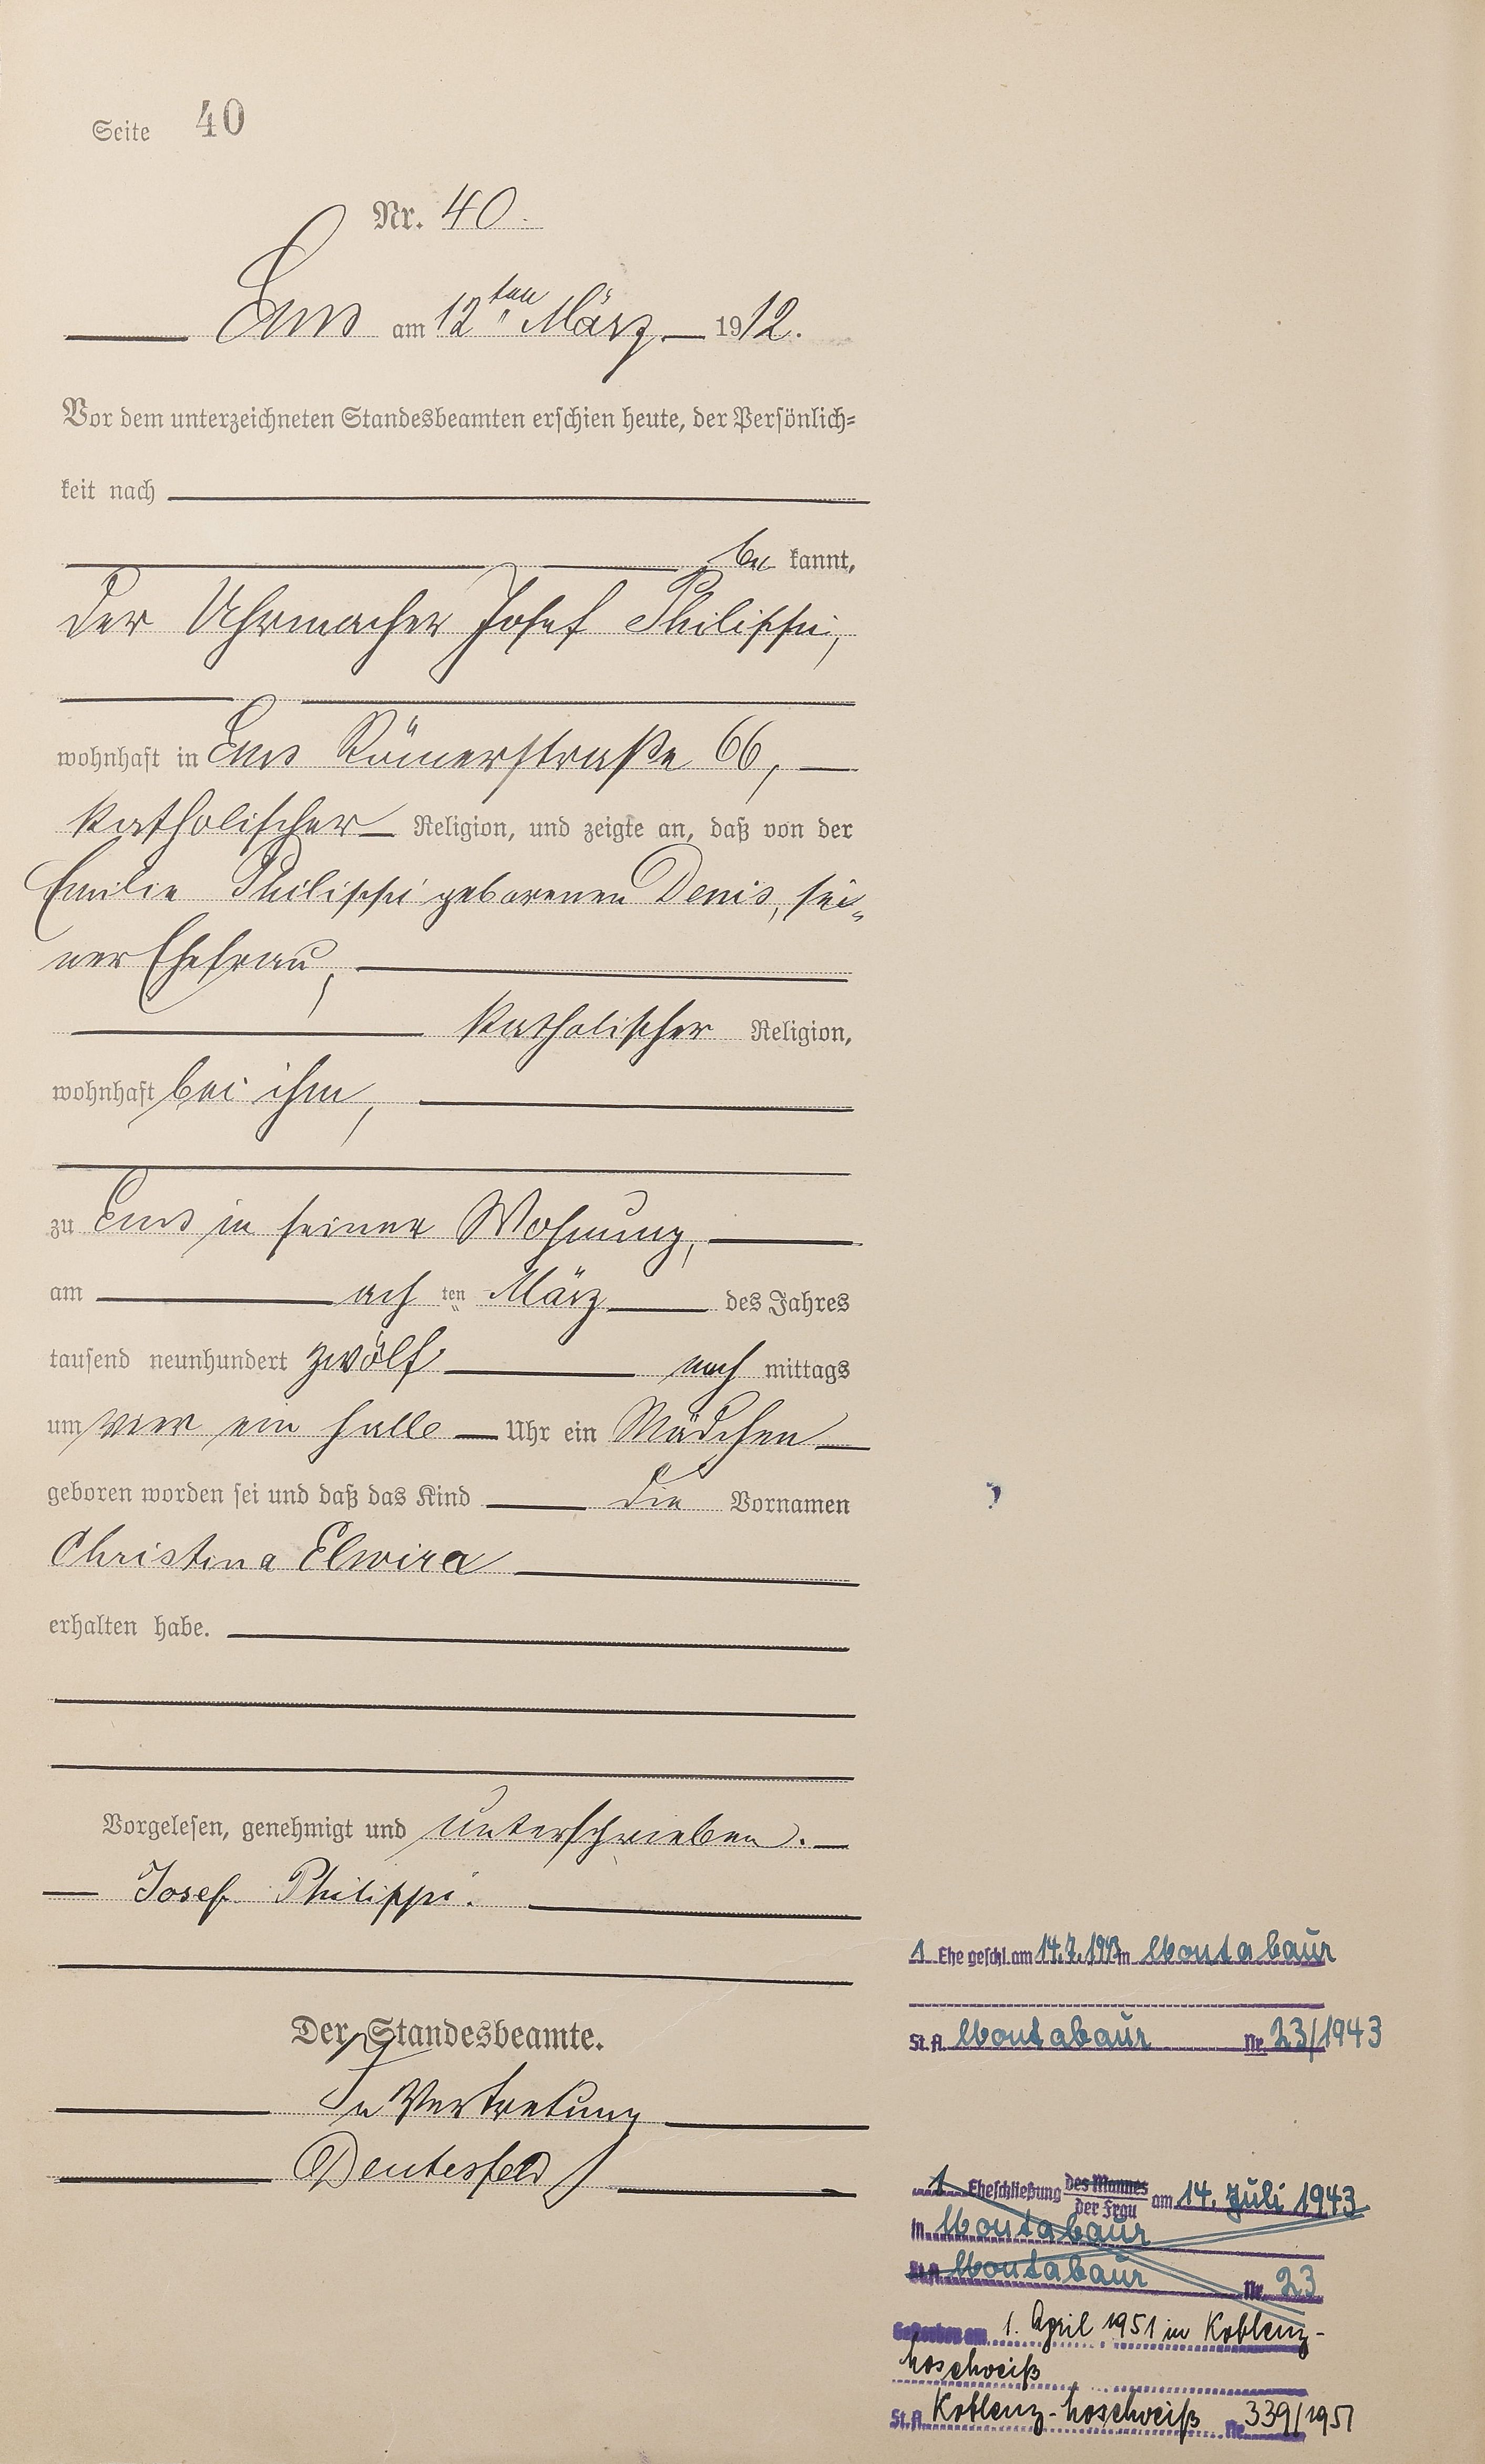 Seite 40
Nr. 40.
Ems am 12ten März 1912.
Vor dem unterzeichneten Standesbeamten erschien heute, der Persönlich=
keit nach
be kannt,
der Uhrmacher Josef Philippi,
wohnhaft in Ems Römerstraße 66,
katholischer Religion, und zeigte an, daß von der
Emilie Philippi geborenen Denis, sei=
ner Ehefrau,
katholischer Religion,
wohnhaft bei ihm,
zu Ems in seiner Wohnung,
am ach ten März des Jahres
tausend neunhundert zwölf nach mittags
um vier ein halb Uhr ein Mädchen
geboren worden sei und daß das Kind die Vornamen
Christina Elwira
erhalten habe.
Vorgelesen, genehmigt und unterschrieben.
Josef Philippi.
Der Standesbeamte.
In Vertretung
1 Ehe geschl. am 14.7.1943 in Montabaur
St. A. Montabaur Nr. 23/1943
1 Eheschließung des Mannes der Frau am 14. Juli 1943
in Montabaur
St. A. Montabaur Nr. 23
Gestorben am 1. April 1951 in Koblenz-
Moselweiß
St. A. Koblenz-Moselweiß Nr. 339/1951